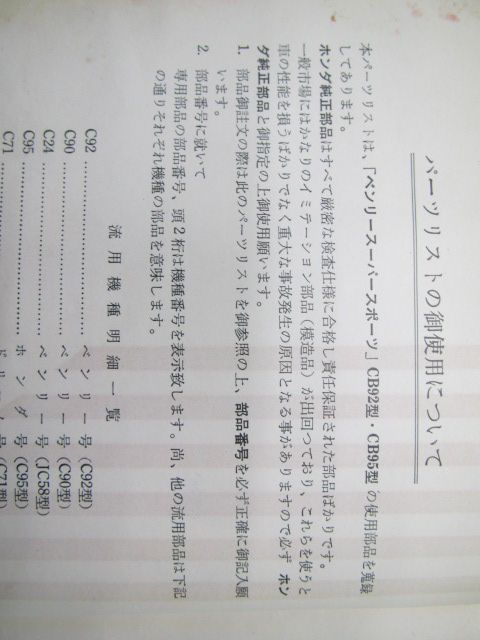 パーツリストの御使用について
本パーツリストは、「ベンリースーパースポーツ」CB92型・CB95型の使用部品を蒐録
してあります。
ホンダ純正部品はすべて厳密な検査仕様に合格し責任保証された部品ばかりです。
一般市場にはかなりのイミテーション部品（模造品）が出回つており、これらを使うと
車の性能を損うばかりでなく重大な事故発生の原因となる事がありますので必ず ホン
ダ純正部品と御指定の上御使用願います。
1. 部品御註文の際は此のパーツリストを御参照の上、部品番号を必ず正確に御記入願
います。
2. 部品番号に就いて
専用部品の部品番号、頭2桁は機種番号を表示致します。尚、他の流用部品は下記
の通りそれぞれ機種の部品を意味します。
流用機種明細一覧
C92 ………………… ベンリー号（C92型）
C90 ………………… ベンリー号（C90型）
C24 ………………… ベンリー号（JC58型）
C95 ………………… ホンダ号（C95型）
C71 ………………… ドリーム号（C71型）